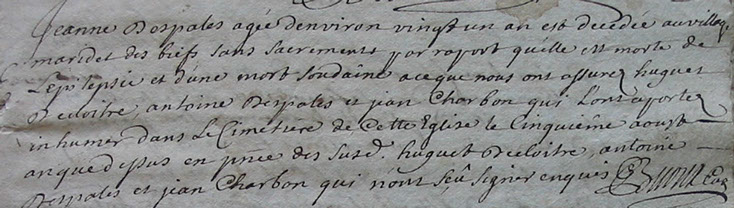 Jeanne Despales agée denviron vingt un an est decedée au village
maridet des biefs sans sacrements par raport quelle est morte de
Lepilepsie et dune mort soudaine aceque nous ont assurez huguet
Decloitre, antoine Despales et jean Charbon qui Lont aportez
inhumer dans Le Cimetiére de Cette Eglise le Cinquiéme aoust
an que dessus en pnce des susd. huguet Decloitre, antoine
Despales et jean Charbon qui nont sçû signer enquis